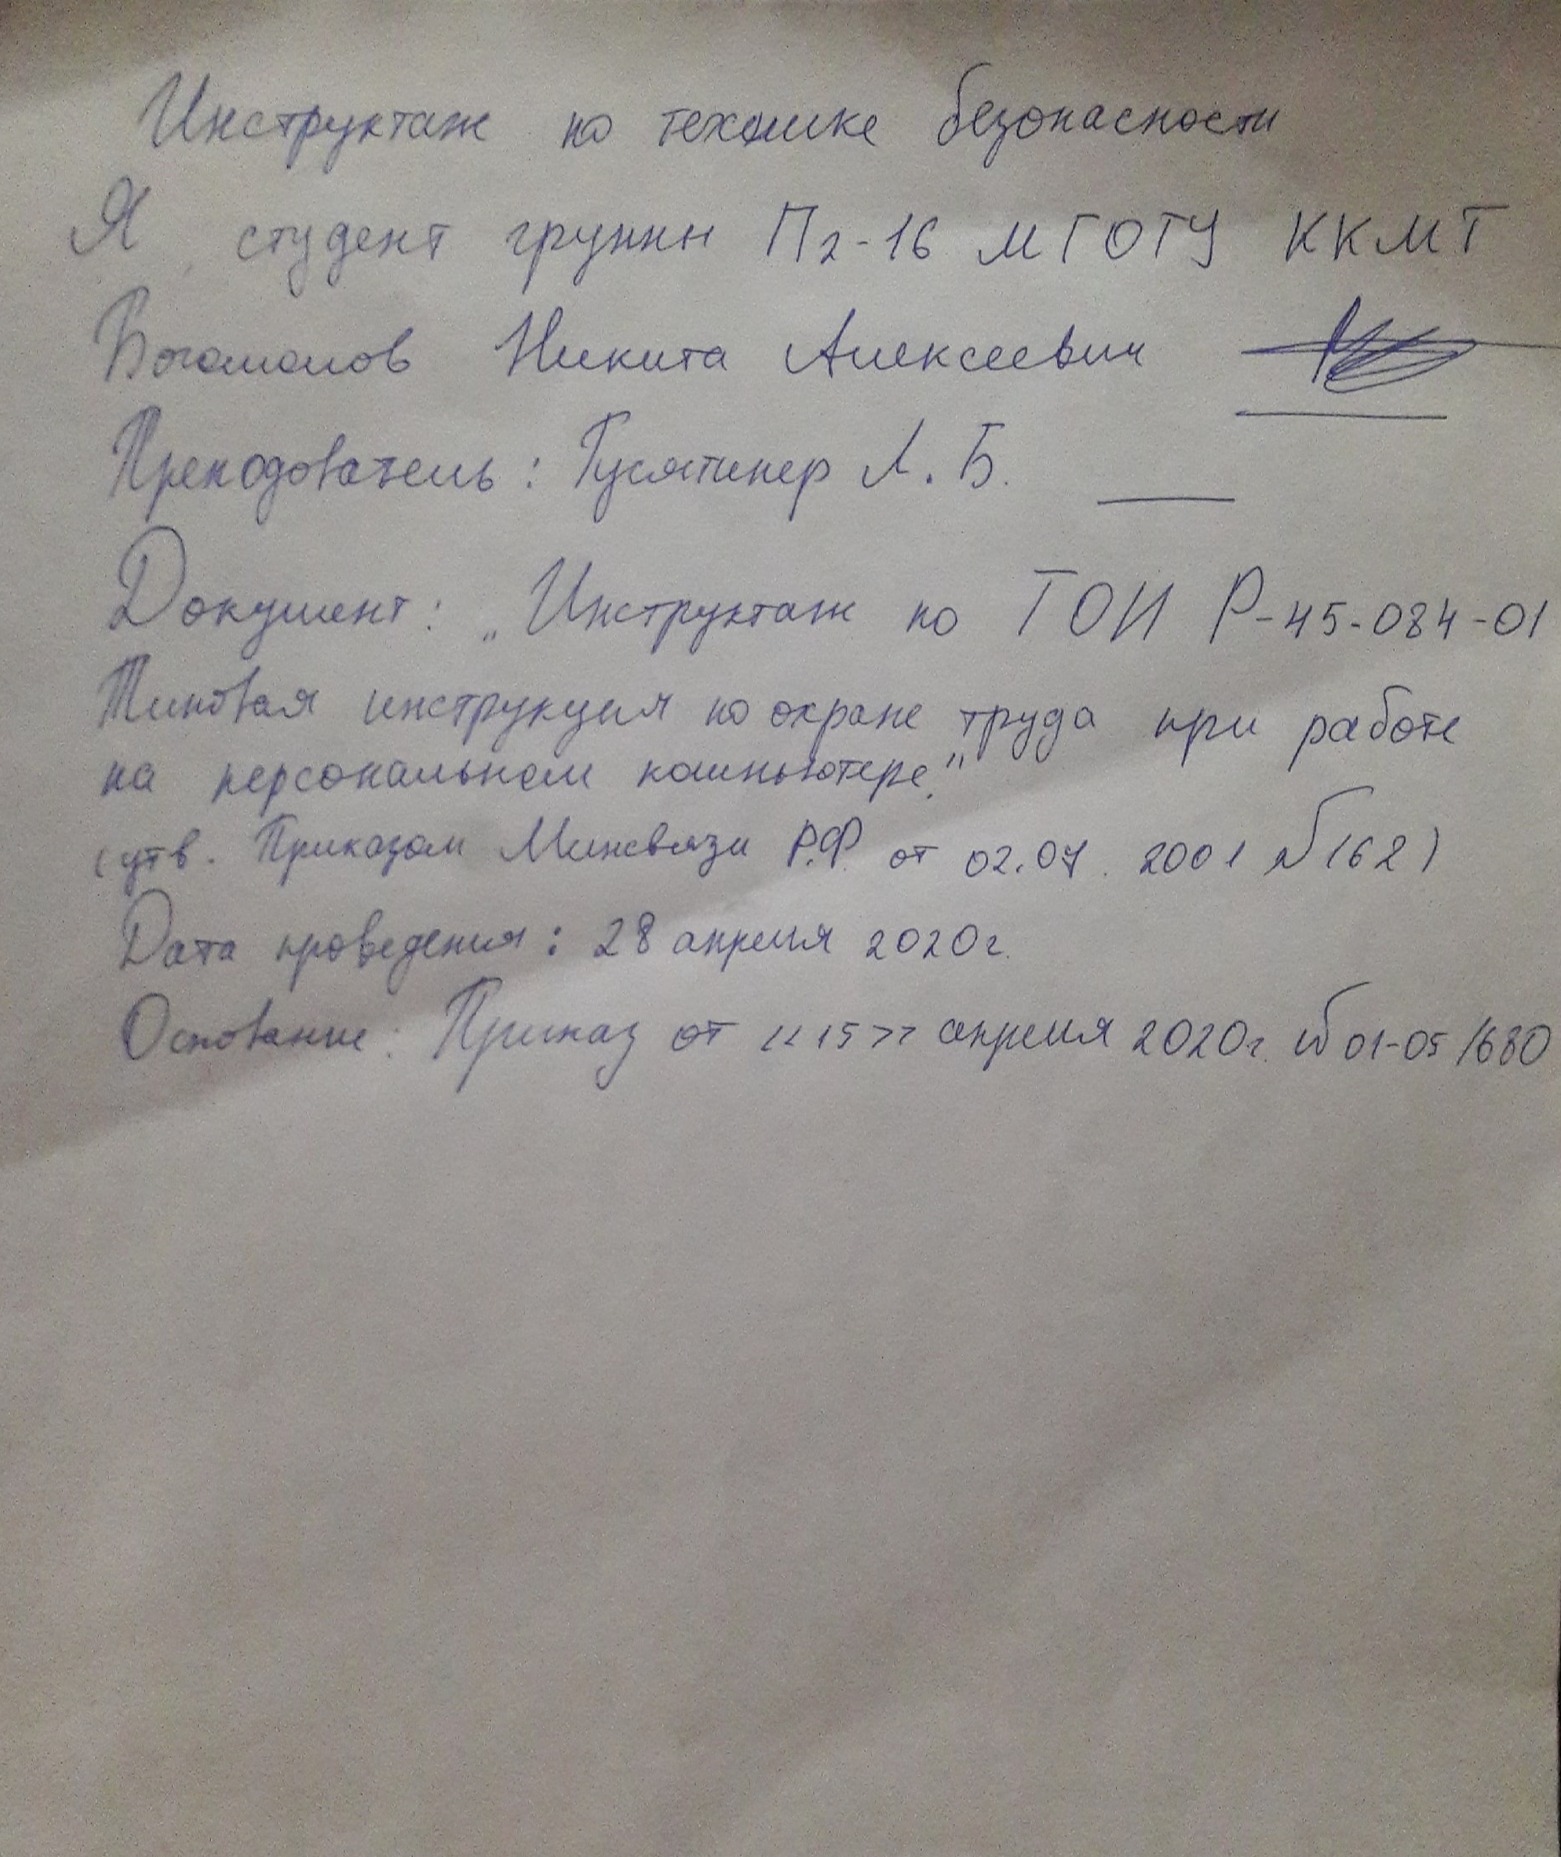 Инструктаж по технике безопасности
Я студент группы П2-16 МГОТУ ККМТ
Богомолов Никита Алексеевич
Преподователь: Гусятинер Л.Б.
Документ: „Инструктаж по ТОИ Р-45-084-01
Типовая инструкция по охране труда при работе
на персональном компьютере."
(утв. Приказом Минсвязи Р.Ф. от 02.07.2001 №162)
Дата проведения: 28 апреля 2020г.
Основание: Приказ от «15» апреля 2020г. №01-05/680